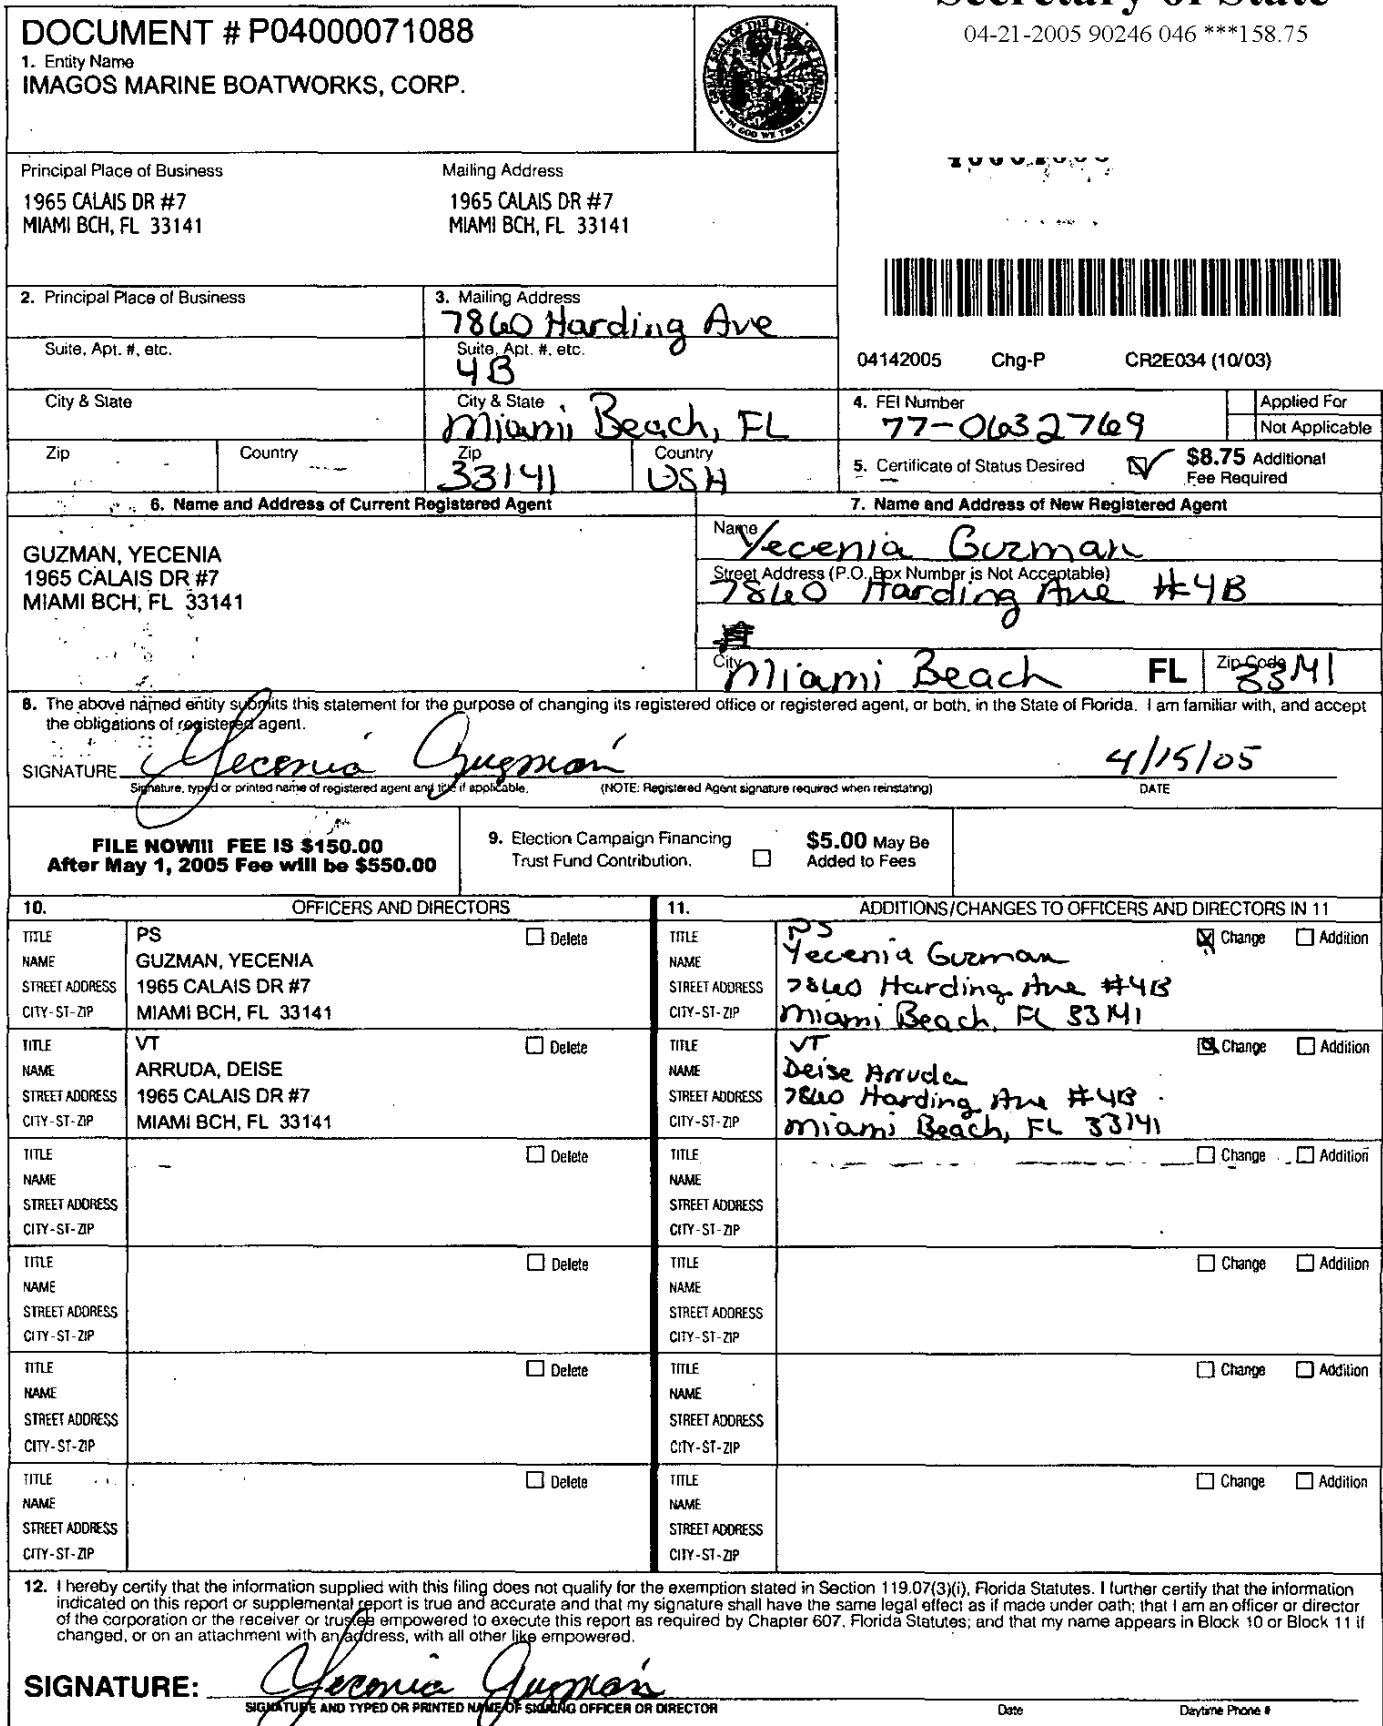 Secretary of State
04-21-2005 90246 046 ***158.75
DOCUMENT # P04000071088
1. Entity Name
IMAGOS MARINE BOATWORKS, CORP.
GREAT SEAL OF THE STATE OF FLORIDA
IN GOD WE TRUST
Principal Place of Business
1965 CALAIS DR #7
MIAMI BCH, FL 33141
Mailing Address
1965 CALAIS DR #7
MIAMI BCH, FL 33141
04142005 Chg-P CR2E034 (10/03)
2. Principal Place of Business
Suite, Apt. #, etc.
City & State
Zip Country
3. Mailing Address
7860 Harding Ave
Suite, Apt. #, etc.
4B
City & State
Miami Beach, FL
Zip Country
33141 USA
4. FEI Number
77-0632769
Applied For
Not Applicable
5. Certificate of Status Desired
$8.75 Additional
Fee Required
6. Name and Address of Current Registered Agent
GUZMAN, YECENIA
1965 CALAIS DR #7
MIAMI BCH, FL 33141
7. Name and Address of New Registered Agent
Name
Yecenia Guzman
Street Address (P.O. Box Number is Not Acceptable)
7860 Harding Ave #4B
City
Miami Beach FL
Zip Code
33141
8. The above named entity submits this statement for the purpose of changing its registered office or registered agent, or both, in the State of Florida. I am familiar with, and accept
the obligations of registered agent.
SIGNATURE Yecenia Guzmán 4/15/05
Signature, typed or printed name of registered agent and title if applicable. (NOTE: Registered Agent signature required when reinstating) DATE
FILE NOW!!! FEE IS $150.00
After May 1, 2005 Fee will be $550.00
9. Election Campaign Financing
Trust Fund Contribution.
$5.00 May Be
Added to Fees
10. OFFICERS AND DIRECTORS
TITLE PS Delete
NAME GUZMAN, YECENIA
STREET ADDRESS 1965 CALAIS DR #7
CITY-ST-ZIP MIAMI BCH, FL 33141
TITLE VT Delete
NAME ARRUDA, DEISE
STREET ADDRESS 1965 CALAIS DR #7
CITY-ST-ZIP MIAMI BCH, FL 33141
TITLE Delete
NAME
STREET ADDRESS
CITY-ST-ZIP
TITLE Delete
NAME
STREET ADDRESS
CITY-ST-ZIP
TITLE Delete
NAME
STREET ADDRESS
CITY-ST-ZIP
TITLE Delete
NAME
STREET ADDRESS
CITY-ST-ZIP
11. ADDITIONS/CHANGES TO OFFICERS AND DIRECTORS IN 11
TITLE PS Change Addition
NAME Yecenia Guzman
STREET ADDRESS 7860 Harding Ave #4B
CITY-ST-ZIP Miami Beach, FL 33141
TITLE VT Change Addition
NAME Deise Arruda
STREET ADDRESS 7860 Harding Ave #4B
CITY-ST-ZIP Miami Beach, FL 33141
TITLE Change Addition
NAME
STREET ADDRESS
CITY-ST-ZIP
TITLE Change Addition
NAME
STREET ADDRESS
CITY-ST-ZIP
TITLE Change Addition
NAME
STREET ADDRESS
CITY-ST-ZIP
TITLE Change Addition
NAME
STREET ADDRESS
CITY-ST-ZIP
12. I hereby certify that the information supplied with this filing does not qualify for the exemption stated in Section 119.07(3)(i), Florida Statutes. I further certify that the information
indicated on this report or supplemental report is true and accurate and that my signature shall have the same legal effect as if made under oath; that I am an officer or director
of the corporation or the receiver or trustee empowered to execute this report as required by Chapter 607, Florida Statutes; and that my name appears in Block 10 or Block 11 if
changed, or on an attachment with an address, with all other like empowered.
SIGNATURE: Yecenia Guzmán
SIGNATURE AND TYPED OR PRINTED NAME OF SIGNING OFFICER OR DIRECTOR Date Daytime Phone #